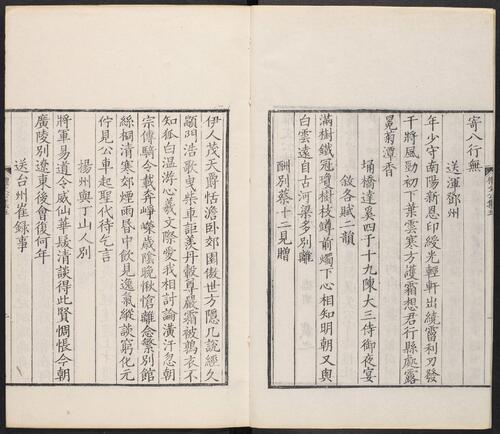 寄八行無
送渾鄧州
年少守南陽新恩印綬光輕軒出繞霤利刃發
干將風勁初下葉雲寒方護霜想君行縣處露
冕菊潭香
埇橋達奚四于十九陳大三侍御夜宴
敘各賦二韻
滿樹鐵冠瓊樹枝樽前燭下心相知明朝又與
白雲遠自古河梁多別離
酬別蔡十二見贈
伊人茂天爵恬澹卧郊園傲世方隱几說經久
顓門浩歌曳柴車詎羨丹轂尊嚴霜被鶉衣不
知狐白溫游心羲文際愛我相討論潢汙忽朝
宗傳騎令載奔崢嶸歲陰晚愀愴離念繁別館
絲桐清寒郊煙雨昏中飲見逸氣縱談窮化元
佇見公車起聖代待乞言
揚州與丁山人別
將軍易道令威仙華髮清談得此賢惆悵今朝
廣陵別遼東後會復何年
送台州崔錄事